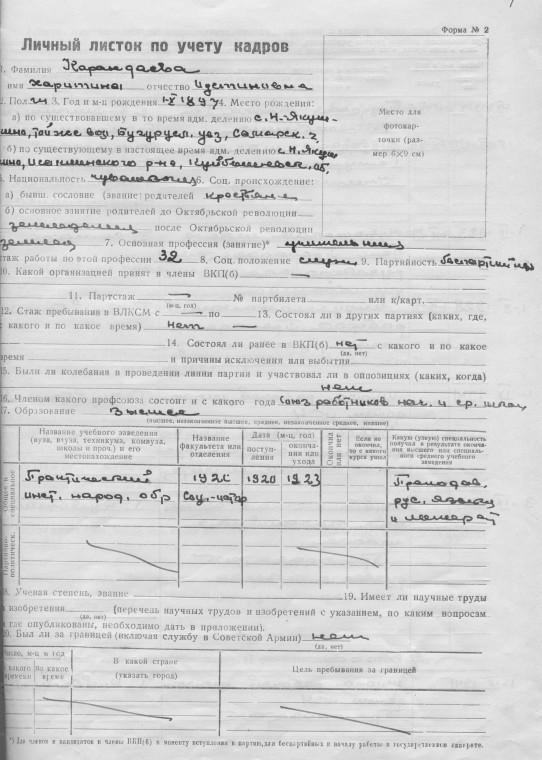 Форма № 2
Личный листок по учету кадров
1. Фамилия Карандаева
имя Харитина отчество Устиновна
2. Пол ж 3. Год и м-ц рождения 1897 4. Место рождения:
а) по существовавшему в то время адм. делению с. Н-Якуш-
кино, вол, Бугурусл. уез, Самарск. г.
б) по существующему в настоящее время адм. делению с. Н-Якуш
кино, Исаклинского р-на, Куйбышевск. об.
Место для
фотокар-
точки (раз-
мер 6×9 см)
5. Национальность 6. Соц. происхождение:
а) бывш. сословие (звание) родителей крестьяне
б) основное занятие родителей до Октябрьской революции
земледелие после Октябрьской революции
земледел 7. Основная профессия (занятие)* учительница
стаж работы по этой профессии 32 8. Соц. положение служ 9. Партийность беспартийная
10. Какой организацией принят в члены ВКП(б) —
11. Партстаж — № партбилета или к/карт.
(м-ц, год)
12. Стаж пребывания в ВЛКСМ с — по 13. Состоял ли в других партиях (каких, где,
с какого и по какое время) нет —
14. Состоял ли ранее в ВКП(б) нет с какого и по какое
(да, нет)
время и причины исключения или выбытия
15. Были ли колебания в проведении линии партии и участвовал ли в оппозициях (каких, когда)
нет
16. Членом какого профсоюза состоит и с какого года Союз работников нач. и ср. школ
17. Образование Высшее
(высшее, незаконченное высшее, среднее, незаконченное среднее, низшее)
Название учебного заведения (вуза, втуза, техникума, комвуза, школы и проч.) и его местонахождение
Название факультета или отделения
Дата (м-ц, год)
поступ-ления
оконча-ния или ухода
Окончил или нет
Если не окончил, то с какого курса ушел
Какую (узкую) специальность получил в результате окончания высшего или специального среднего учебного заведения
Общее и специальное
Практический 1920 1923 Преподав.
инст. народ. обр Соц.-истор рус. языка
и литерат
Партийно-политическ.
18. Ученая степень, звание 19. Имеет ли научные труды
и изобретения (перечень научных трудов и изобретений с указанием, по каким вопросам
(да, нет)
и где опубликованы, необходимо дать в приложении).
20. Был ли за границей (включая службу в Советской Армии) нет
(да, нет)
Число, м-ц и год
с какого времени
по какое время
В какой стране
(указать город)
Цель пребывания за границей
*) Для членов и кандидатов в члены ВКП(б) к моменту вступления в партию, для беспартийных к началу работы в государственном аппарате.